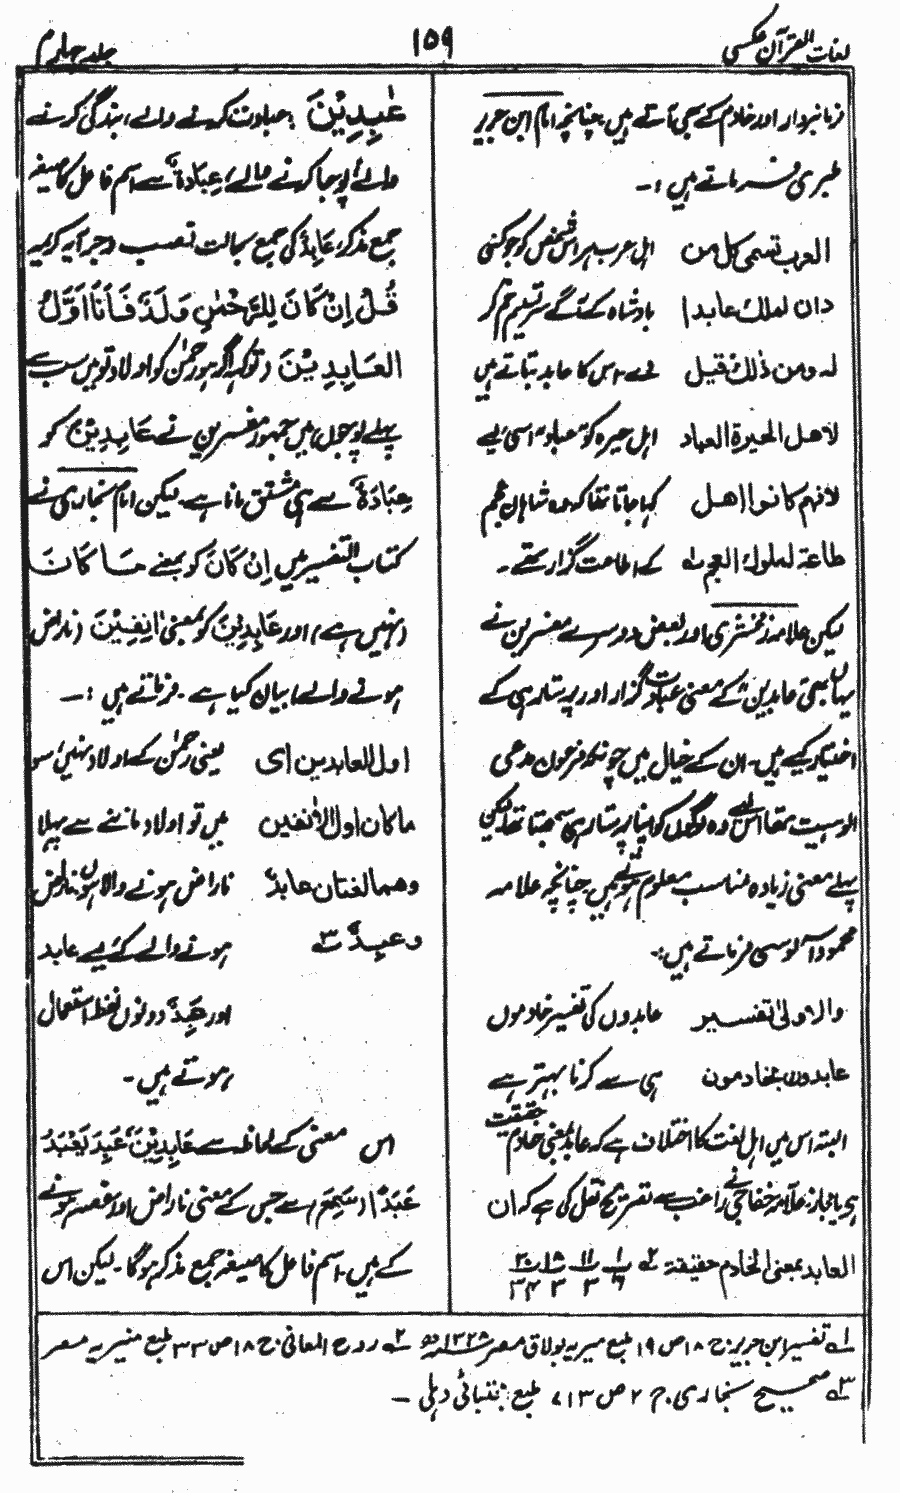 لغات القرآن عکسی ۱۵۹ جلد چہارم
فرمانبردار اور خادم کے بھی آتے ہیں، چنانچہ امام ابن جریر
طبری فرماتے ہیں :۔
العرب تسمی کل من اہل عرب ہر اس شخص کو جو کسی
دان لملك عابدا بادشاہ کے آگے سرتسلیم خم کر
له ومن ذلك قيل دے۔ اس کا عابد بتاتے ہیں
لاهل الحيرة العباد اہل حیرہ کو "عباد" اسی لیے
لانهم كانوا اهل کہا جاتا تھا کہ وہ شاہان عجم
طاعة لملوك العجم لہ کے اطاعت گزار تھے۔
لیکن علامہ زمخشری اور بعض دوسرے مفسرین نے
یہاں بھی عابدین کے معنی عبادت گزار اور پرستار ہی کے
اختیار کیے ہیں۔ ان کے خیال میں چونکہ فرعون مدعی
الوہیت تھا اس لیے وہ لوگوں کو اپنا پرستار ہی سمجھتا تھا لیکن
پہلے معنی زیادہ مناسب معلوم ہوتے ہیں چنانچہ علامہ
محمود آلوسی فرماتے ہیں :۔
والاولیٰ تفسير عابدوں کی تفسیر خادموں
عابدون بخادمون ہی سے کرنا بہتر ہے
البتہ اس میں اہل لغت کا اختلاف ہے کہ عابد بمعنی خادم حقیقت
ہے یا مجاز۔ علامہ خفاجی نے راغب سے تصریح نقل کی ہے کہ ان
العابد بمعنى الخادم حقيقة ۲ے ۱/۱۶ ۱۱/۳ ۱۸/۳ ۲۰/۳۴
عٰبِدِيْنَ : عبادت کرنے والے، بندگی کرنے
والے، پوجا کرنے والے، عِبَادَۃٌ سے اسم فاعل کا صیغہ
جمع مذکر، عَابِدٌ کی جمع بحالت نصب وجر آیہ کریمہ
قُلْ اِنْ كَانَ لِلرَّحْمٰنِ وَلَدٌ فَاَنَا اَوَّلُ
الْعَابِدِيْنَ (تو کہہ اگر ہو رحمٰن کو اولاد تو میں سب سے
پہلے پوجوں) میں جمہور مفسرین نے عَابِدِيْنَ کو
عِبَادَۃٌ سے ہی مشتق مانا ہے۔ لیکن امام بخاری نے
کتاب التفسیر میں اِنْ كَانَ کو بمعنے مَا كَانَ
(نہیں ہے) اور عَابِدِيْنَ کو بمعنی اٰنِفِيْنَ (ناراض
ہونے والے) بیان کیا ہے۔ فرماتے ہیں :۔
اول العابدين ای یعنی رحمٰن کے اولاد نہیں، سو
ما كان اول الاٰنفين میں تو اولاد ماننے سے پہلا
وهما لغتان عابدٌ ناراض ہونے والا ہوں، ناراض
وعبدٌ ۳ے ہونے والے کے لیے عابد
اور عَبِدٌ دونوں لفظ استعمال
ہوتے ہیں۔
اس معنی کے لحاظ سے عَابِدِيْنَ عَبِدَ يَعْبَدُ
عَبَدًا (سَمِعَ) سے جس کے معنی ناراض اور غصہ ہونے
کے ہیں۔ اسم فاعل کا صیغہ جمع مذکر ہوگا۔ لیکن اس
۱ے تفسیر ابن جریر: ج ۱۸ ص ۱۹ طبع میریہ بولاق مصر ۱۳۲۸ھ ۲ے روح المعانی: ج ۱۸ ص ۳۳ طبع منیریہ مصر
۳ے صحیح بخاری۔ ج ۲ ص ۷۱۳، طبع: مجتبائی دہلی ۔